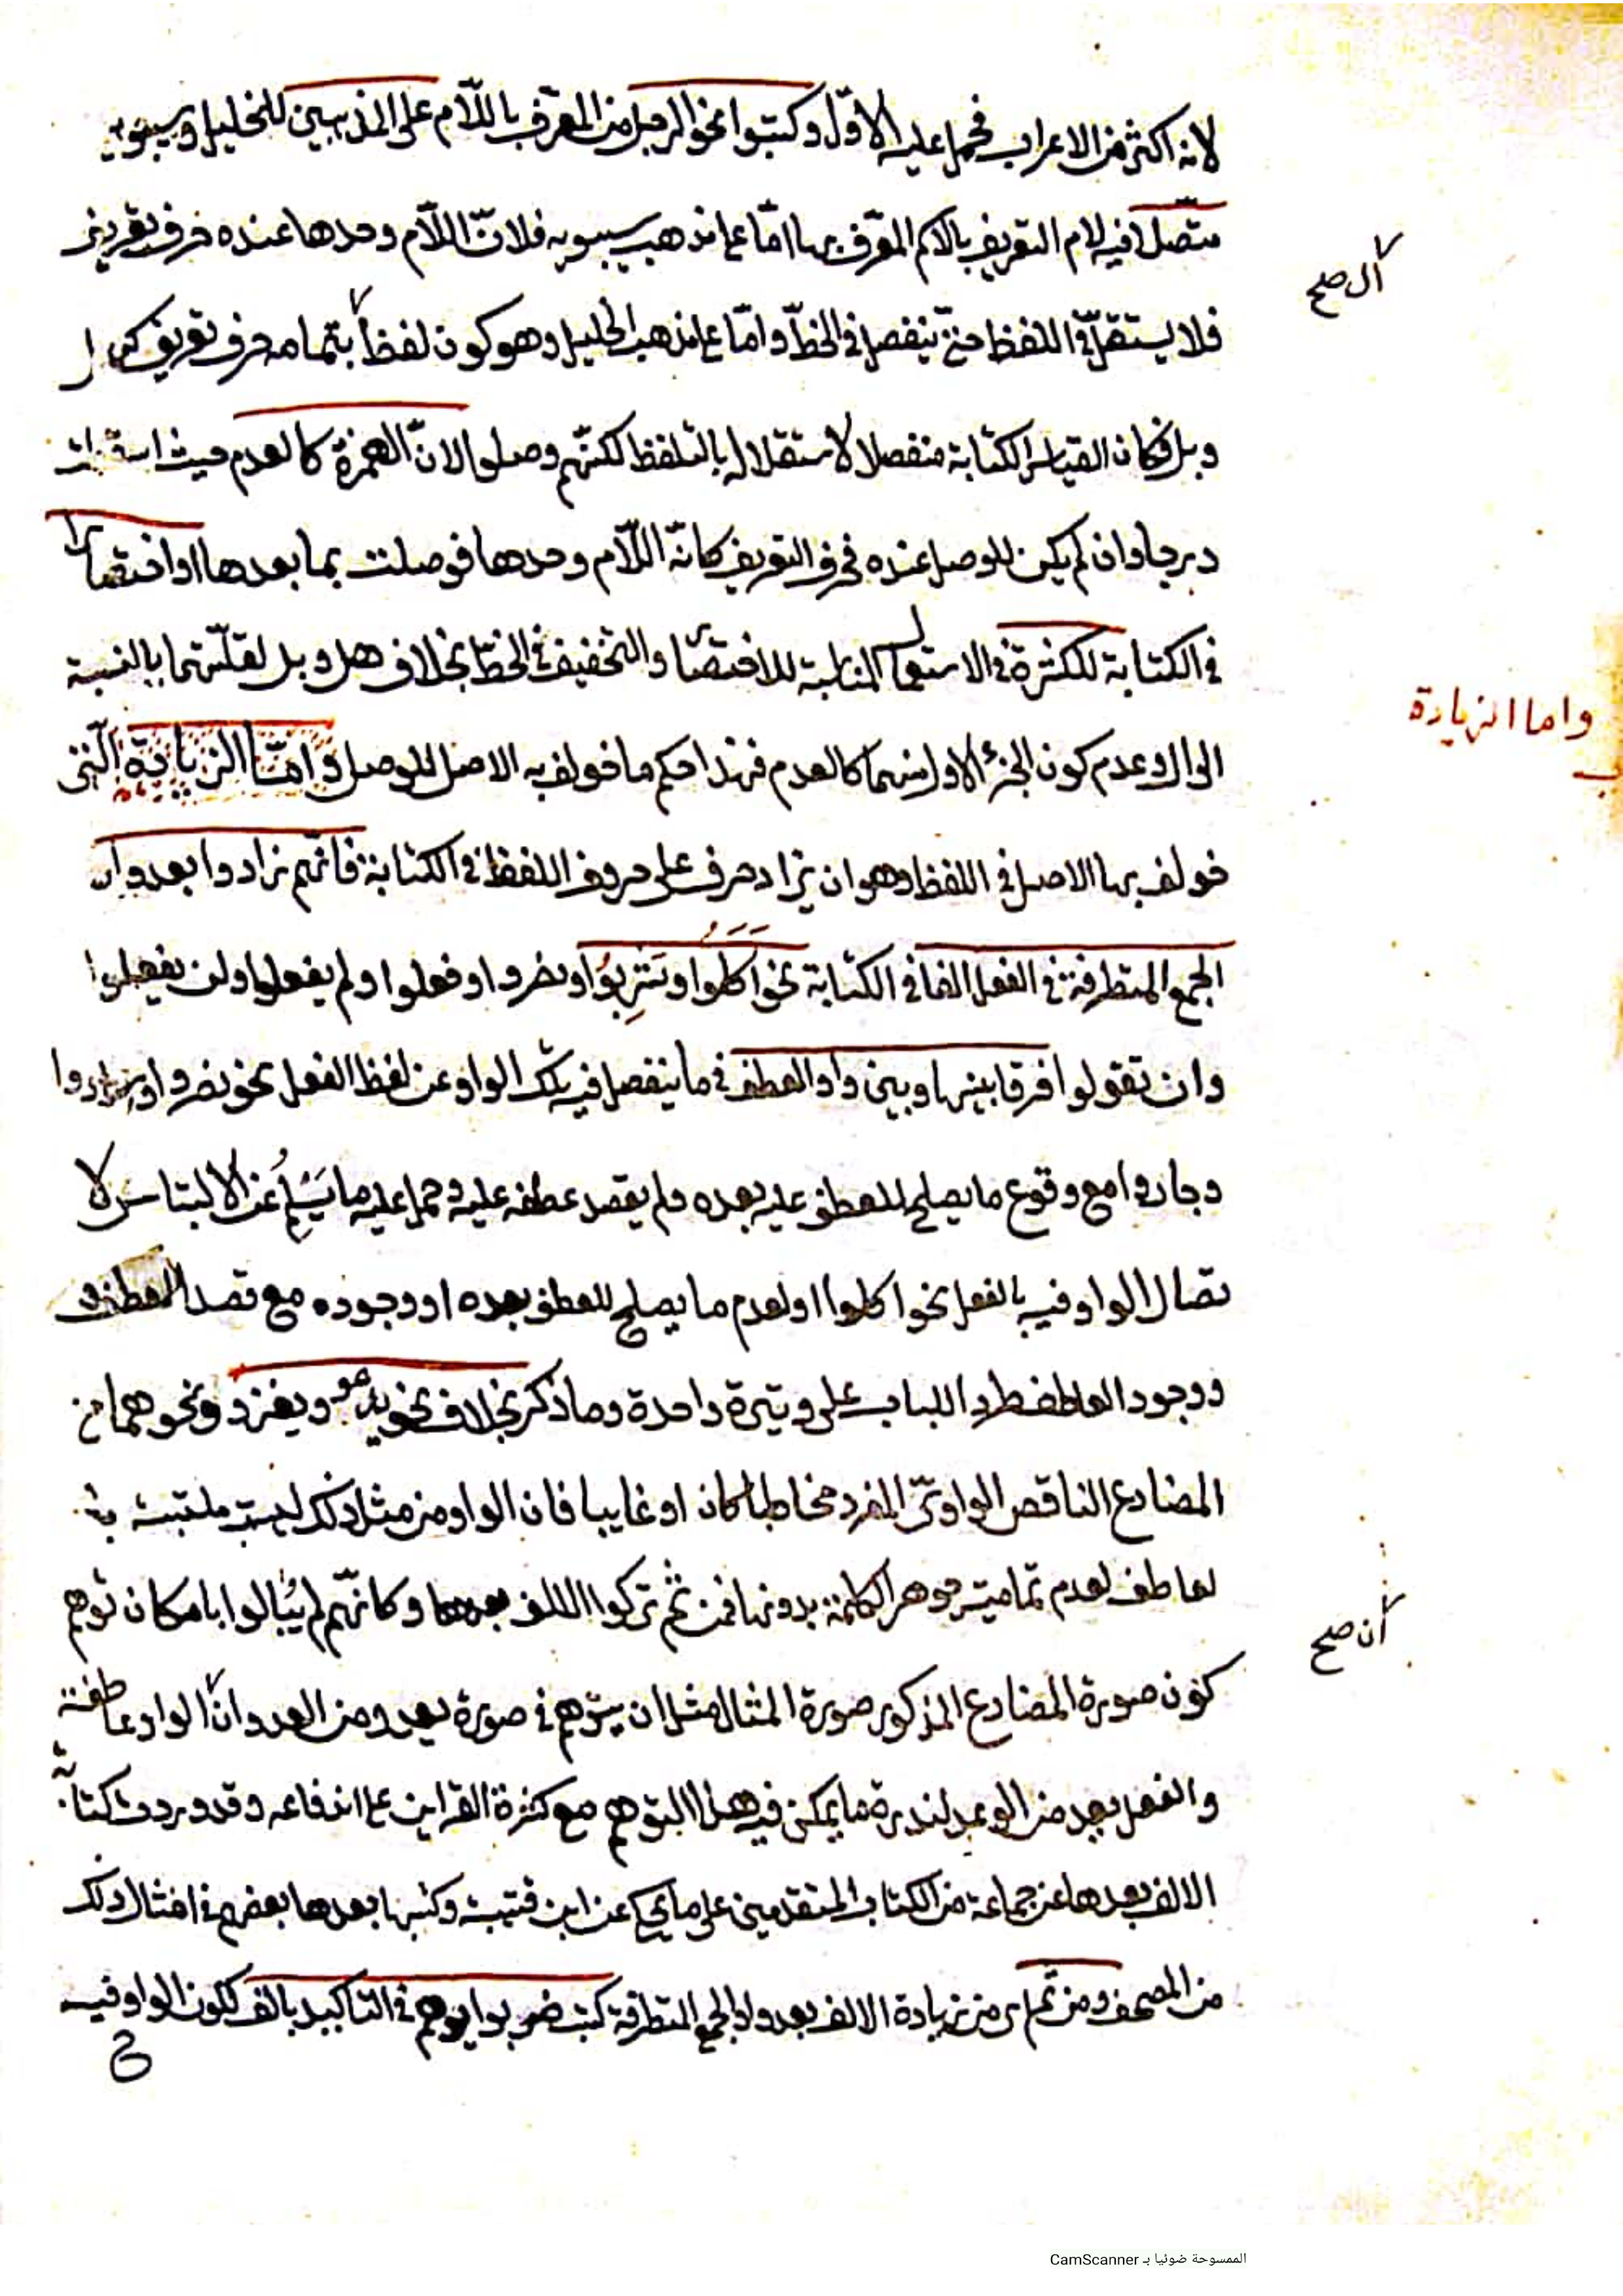 لانه اكثر من الاعراب فحمل عليه الاوّل وكتبوا نحو الرجل من المعرّف باللّام على المذهبين للخليل وسيبويه
متّصلا فيه لام التعريف بالاسم المعرّف بها امّا على مذهب سيبويه فلانّ اللّام وحدها عنده حرف تعريف
آل صح
فلا يستقلّ في اللفظ حتّى ينفصل في الخطّ وامّا على مذهب الخليل وهو كون لفظ بتمامه حرف تعريف كهل
وبل فكان القياس الكتابة منفصلا لاستقلاله بالتلفظ لكنّهم وصلوا لانّ الهمزة كالعدم حيث اسقطت
درجا وان لم يكن للوصل عنده فحرف التعريف كانّه اللّام وحدها فوصلت بما بعدها او اختصارا
في الكتابة للكثرة في الاستعمال المناسبة للاختصار والتخفيف في الخطّ بخلاف هل وبل لقلّتهما بالنسبة
واما الزيادة
الى ال وعدم كون الجزء الاول منهما كالعدم فهذا حكم ما خولف به الاصل للوصل وامّا الزيادة الّتي
خولف بها الاصل في اللفظ وهو ان يزاد حرف على حروف اللفظ في الكتابة فانّهم زادوا بعد واو
الجمع المتطرفة في الفعل الفا في الكتابة نحو اكلوا وشربوا ونصروا وفعلوا ولم يفعلوا ولن يفعلوا
وان تقولوا فرقا بينها وبين واو العطف في ما ينفصل فيه تلك الواو عن لفظ الفعل نحو نصروا وزادوا
وجاروا مع وقوع ما يصلح للعطف عليه بعده ولم يقصد عطفه عليه وحمل عليه ما يسلم عن الالتباس لا
تصال الواو فيه بالفعل نحو اكلوا او لعدم ما يصلح للعطف بعده او وجوده مع قصد العطف
ووجود العاطف طردا للباب على وتيرة واحدة وما ذكر بخلاف نحو يدعو ويغزو ونحوهما من
المضارع الناقص الواويّ المفرد مخاطبا كان او غايبا فان الواو من مثل ذلك ليست ملتبسة با
لعاطف لعدم تماميّة جوهر الكلمة بدونها فمن ثمّ تركوا الالف بعدها وكانّهم لم يُبالوا بامكان توهم
أن صح
كون صورة المضارع المذكور صورة المثال مثل ان يتوهم في صورة يعدو من العدو انّ الواو عاطفة
والفعل يعد من الوعد لندرة ما يمكن فيه هذا التوهم مع كثرة القراين على اندفاعه وقد وردت كتابة
الالف بعدها عن جماعة من الكتاب المتقدمين على ما يحكى عن ابن قتيبة وكتبها بعدها بعضهم في امثال ذلك
من المصحف ومن ثم اى من زيادة الالف بعد واو الجمع المتطرفة كتب ضربوا هم في التاكيد بالف لكون الواو فيه
الممسوحة ضوئيا بـ CamScanner